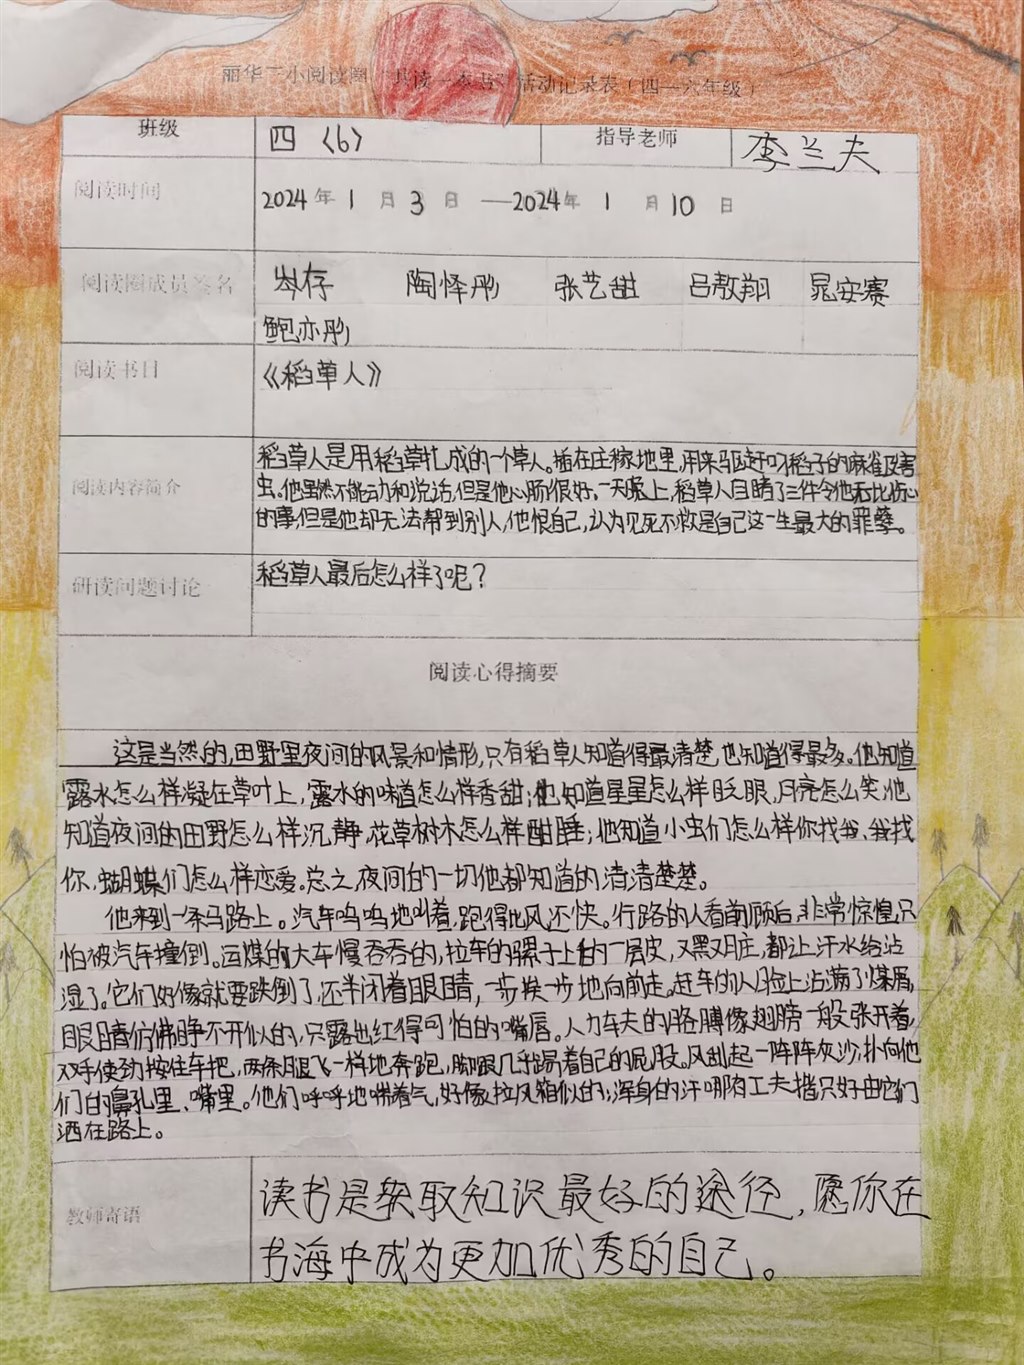 丽华二小阅读圈“共读一本书”活动记录表（四—六年级）
班级 四（6） 指导老师 李兰夫
阅读时间 2024年1月3日—2024年1月10日
阅读圈成员签名 岑存 陶怿彤 张艺甜 吕敖翔 晁安赛
鲍亦彤
阅读书目 《稻草人》
稻草人是用稻草扎成的一个草人。插在庄稼地里,用来驱赶叼稻子的麻雀及害
阅读内容简介 虫。他虽然不能动和说话,但是他心肠很好。一天晚上,稻草人目睹了三件令他无比伤心
的事,但是他却无法帮到别人,他恨自己,认为见死不救是自己这一生最大的罪孽。
研读问题讨论 稻草人最后怎么样了呢？
阅读心得摘要
这是当然的,田野里夜间的风景和情形,只有稻草人知道得最清楚,也知道得最多。他知道
露水怎么样凝在草叶上,露水的味道怎么样香甜;他知道星星怎么样眨眼,月亮怎么笑;他
知道夜间的田野怎么样沉静,花草树木怎么样酣睡;他知道小虫们怎么样你找我、我找
你,蝴蝶们怎么样恋爱。总之,夜间的一切他都知道的清清楚楚。
他来到一条马路上。汽车呜呜地叫着,跑得比风还快。行路的人看前顾后,非常惊惶,只
怕被汽车撞倒。运煤的大车慢吞吞的,拉车的骡子上的一层皮,又黑又脏,都让汗水给沾
湿了。它们好像就要跌倒了,还半闭着眼睛,一步挨一步地向前走。赶车的人脸上沾满了煤屑,
眼睛仿佛睁不开似的,只露出红得可怕的嘴唇。人力车夫的胳膊像翅膀一般张开着,
双手使劲按住车把,两条腿飞一样地奔跑,脚跟几乎踢着自己的屁股。风刮起一阵阵灰沙,扑向他
们的鼻孔里、嘴里。他们呼呼地喘着气,好像拉风箱似的;浑身的汗哪有工夫揩只好由它们
洒在路上。
教师寄语 读书是获取知识最好的途径,愿你在
书海中成为更加优秀的自己。